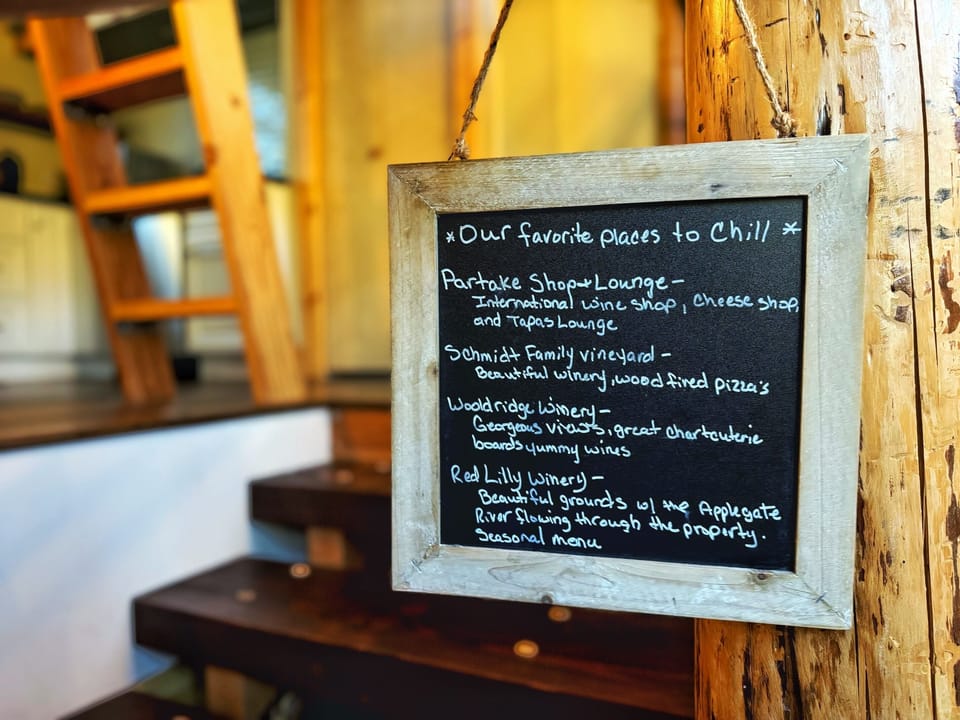 *Our favorite places to Chill *
Partake Shop + Lounge -
International wine shop, Cheese shop,
and Tapas Lounge
Schmidt Family vineyard -
Beautiful winery, wood fired pizza's
Wooldridge Winery -
Georgeous views, great chartcuterie
boards yummy wines
Red Lilly Winery -
Beautiful grounds w/ the Applegate
River flowing through the property.
Seasonal menu